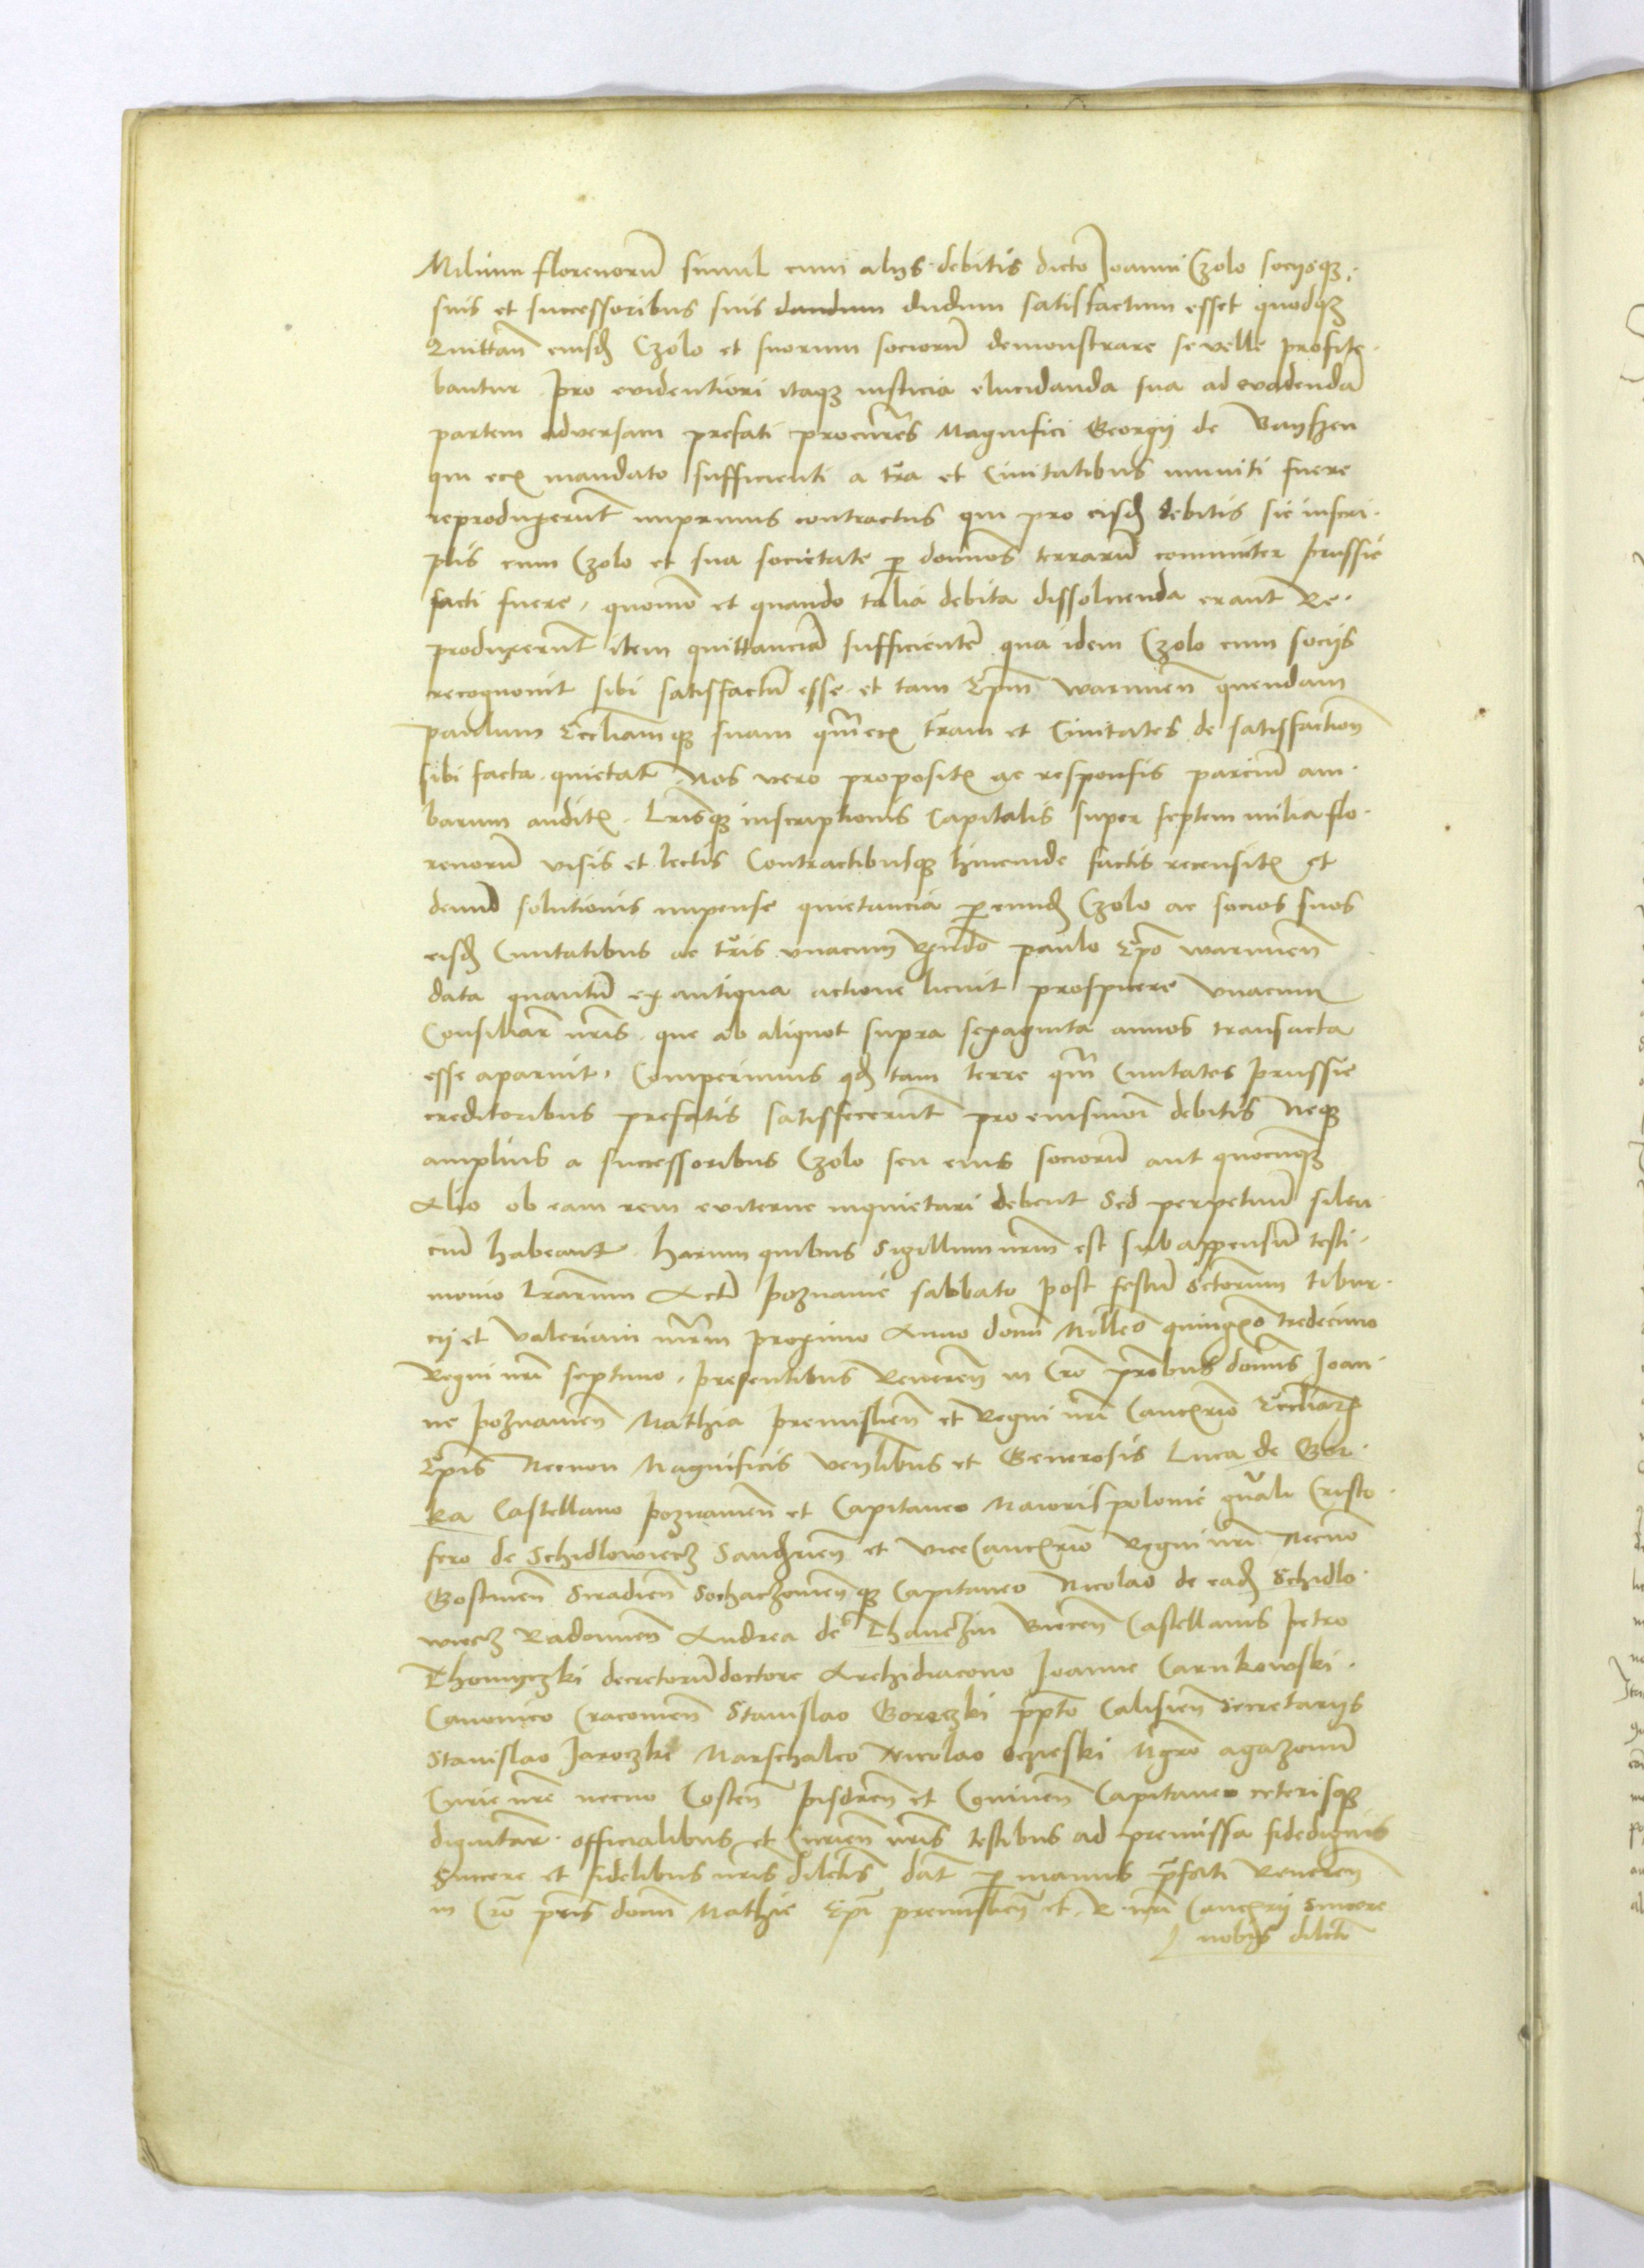 Milium florenorū simul cum alijs debitis dicto Joanni Czolo socijsqȝ
suis et successoribus suis dandum dudum satisfactum esset quodqȝ
Quittan̄ eiusd̄ Czolo et suorum sociorū demonstrare se velle profite
bantur pro evidentiori itaqȝ iusticia elucidanda sua ad evadendā
partem adversam prefati procūres Magnifici Georgij de Baysen
qui ecꝫ mandato sufficienti a tr̄a et Civitatibus muniti fuere
reproduxerūt imprimis contractus qui pro eisd̄ debitis sic inscri
ptis cum Czolo et sua societate ꝑ dominos terrarū communiter prussie
facti fuere, quomō et quando talia debita dissoluenda erant Re
produxerūt item quittanciā sufficientē qua idem Czolo cum socijs
recognovit sibi satisfactū esse et tam Ep̄m warmien̄ quendam
paulum Eccl̄iamqȝ suam qm̄ ecꝫ tr̄am et Civitates de satisfaction̄
sibi facta quietat Nos vero propositꝫ ac responsis parciū am
barum auditꝫ Lr̄isqȝ inscriptionis Capitalis super septem milia flo
renorū visis et lectis Contractibusqȝ hincinde factis recensitꝫ et
demū solutionis impense quietancia ꝑ eund̄ Czolo ac socios suos
eisd̄ Civitatibus ac tr̄is vnacum Rn̄do paulo Ep̄o warmien̄
data quantū ex antiqua actione licuit prospicere vnacum
Consiliar̄ nr̄is que ab aliquot supra sexaginta annos transacta
esse aparuit, Comperimus qd̄ tam terre qm̄ Civitates prussie
creditoribus prefatis satisfecerūt pro eiusmōi debitis Neqȝ
amplius a successoribus Czolo seu eius sociorū aut quocūqȝ
Alio ob eam rem eviterne inquietari debent Sed perpetuū silen
ciū habeant harum quibus Sigillum nr̄m est subappensū testi
monio Lr̄arum Actū poznanie sabbato post festū Sctorum tibur
cij et valeriani mr̄m proximo Anno domī Mill̄eo quingēo tredecimo
Regni nr̄i septimo, presentibus Reveren̄ in Cro pr̄ibus domīs Joan
ne poznanien̄ Mathia premislien̄ et Regni nr̄i Cancꝫrio Eccl̄iarꝫ
Ep̄is Necnon Magnificis ven̄libus et Generosis Luca de Gor
ka Castellano poznanien̄ et Capitaneo Maiorispolonie gn̄ali Cristo
fero de Schidlowiecz Sandꝫrien̄ et vice Cancꝫrio Regni nr̄i Necnō
Gostinen̄ Siradien̄ Sochaczovien̄qȝ Capitaneo Nicolao de ead̄ Schidlo
wiecz Radomien̄ Andrea de Thanczin Biecen̄ Castellanis petro
Thomyczki decretorū doctore Archidiacono Joanne Carnkowski
Canonico Cracovien̄ Stanislao Goreczki pp̄to Calisien̄ Secretarijs
Stanislao Jaroczki Marschalco Nicolao oczieski Mgr̄o agazonū
Curie nr̄e necno Costen̄ pisdren̄ et Coninen̄ Capitaneo ceterisqȝ
dignitar̄ officialibus et Curien̄ nr̄is testibus ad premissa fidedignis
Sincere et fidelibus nr̄is dilctīs dat̄ ꝑ manus pr̄fati Reveren̄
in Cro pr̄is domī Mathie Ep̄i premislien̄ et R nr̄i Cancꝫrij sincere
nobis dilcti